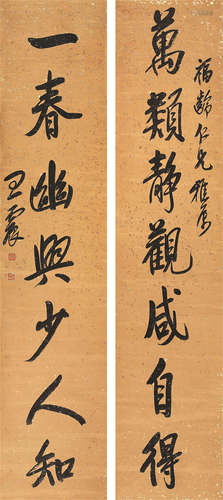 萬類靜觀咸自得
福齡仁兄雅屬
一春幽興少人知
王震